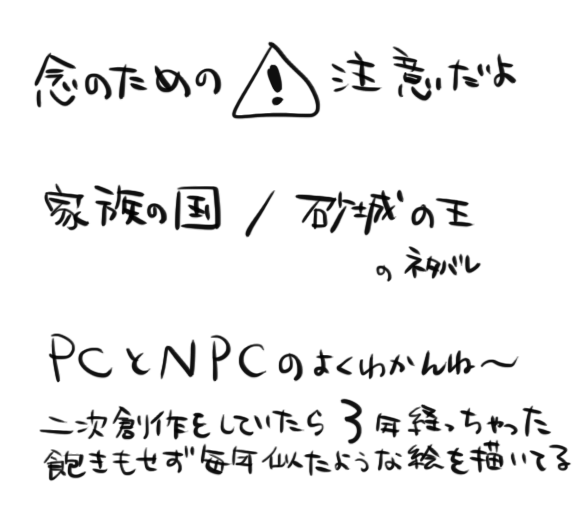 念のための⚠注意だよ
家族の国 / 砂城の王
のネタバレ
PCとNPCのよくわかんね〜
二次創作をしていたら3年経っちゃった
飽きもせず毎年似たような絵を描いてる